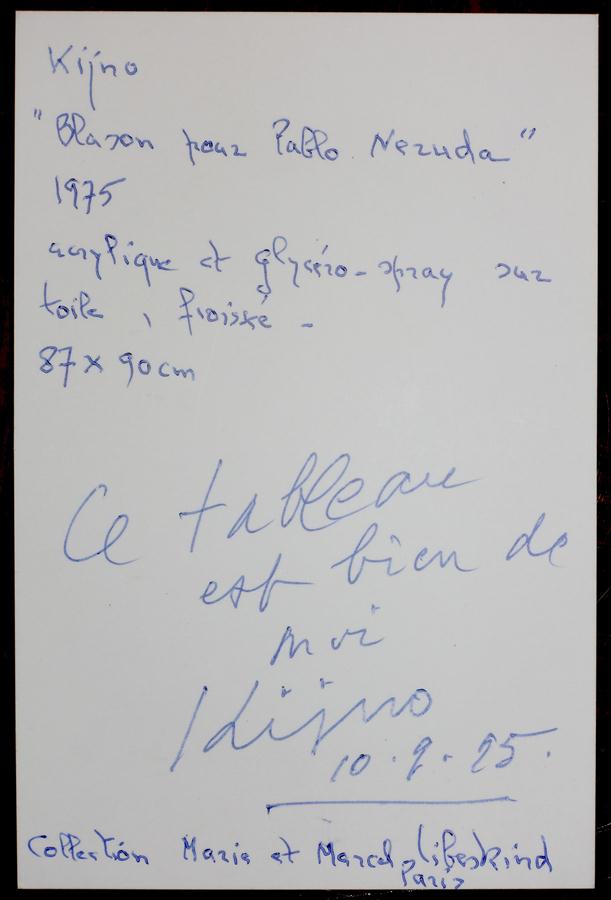 Kijno
"Blason pour Pablo Neruda"
1975
acrylique et glycéro-spray sur
toile, froissé -
87 x 90 cm
Ce tableau
est bien de
moi
Kijno
10.9.95.
Collection Marie et Marcel Libeskind
Paris